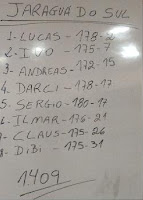 JARAGUA DO SUL
1- LUCAS - 178-2
2- IVO - 175-7
3- ANDREAS - 172-15
4- DARCI - 178-17
5- SERGIO - 180-17
6- ILMAR - 176-21
7- CLAUS - 175-26
8- DIBI - 175-31
1.409